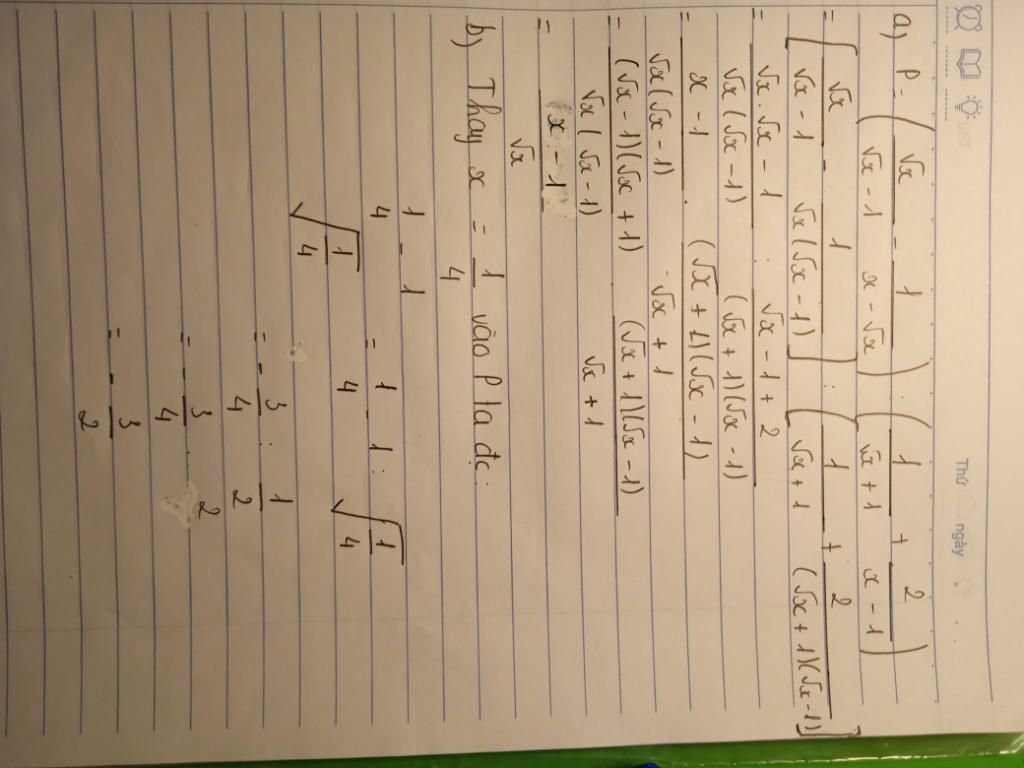 Thứ ngày
a) P = (√x/(√x - 1) - 1/(x - √x)) : (1/(√x + 1) + 2/(x - 1))
= [√x/(√x - 1) - 1/(√x(√x - 1))] : [1/(√x + 1) + 2/((√x + 1)(√x - 1))]
= (√x . √x - 1)/(√x(√x - 1)) : (√x - 1 + 2)/((√x + 1)(√x - 1))
= (x - 1)/(√x(√x - 1)) . ((√x + 1)(√x - 1))/(√x + 1)
= ((√x - 1)(√x + 1))/(√x(√x - 1)) . ((√x + 1)(√x - 1))/(√x + 1)
= (x - 1)/√x
b) Thay x = 1/4 vào P ta đc:
(1/4 - 1)/√(1/4) = 1/4 - 1 : √(1/4)
= - 3/4 : 1/2
= - 3/4 . 2
= - 3/2